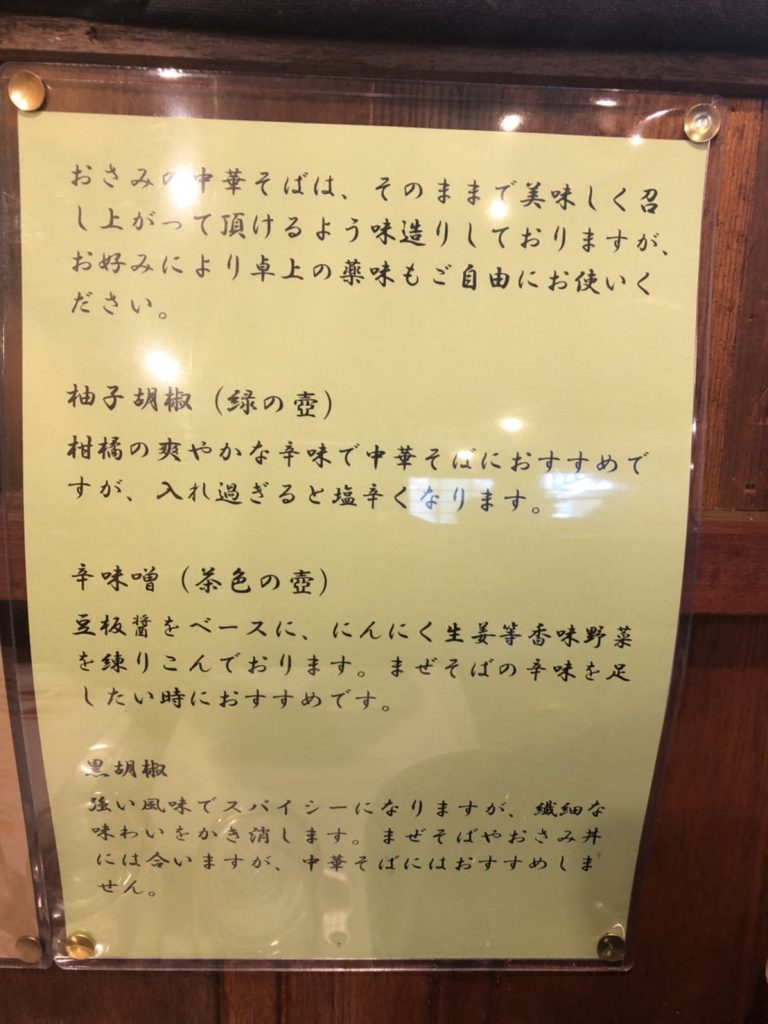 おさみの中華そばは、そのままで美味しく召
し上がって頂けるよう味造りしておりますが、
お好みにより卓上の薬味もご自由にお使いく
ださい。
柚子胡椒（緑の壺）
柑橘の爽やかな辛味で中華そばにおすすめで
すが、入れ過ぎると塩辛くなります。
辛味噌（茶色の壺）
豆板醤をベースに、にんにく生姜等香味野菜
を練りこんでおります。まぜそばの辛味を足
したい時におすすめです。
黒胡椒
強い風味でスパイシーになりますが、繊細な
味わいをかき消します。まぜそばやおさみ丼
には合いますが、中華そばにはおすすめしま
せん。